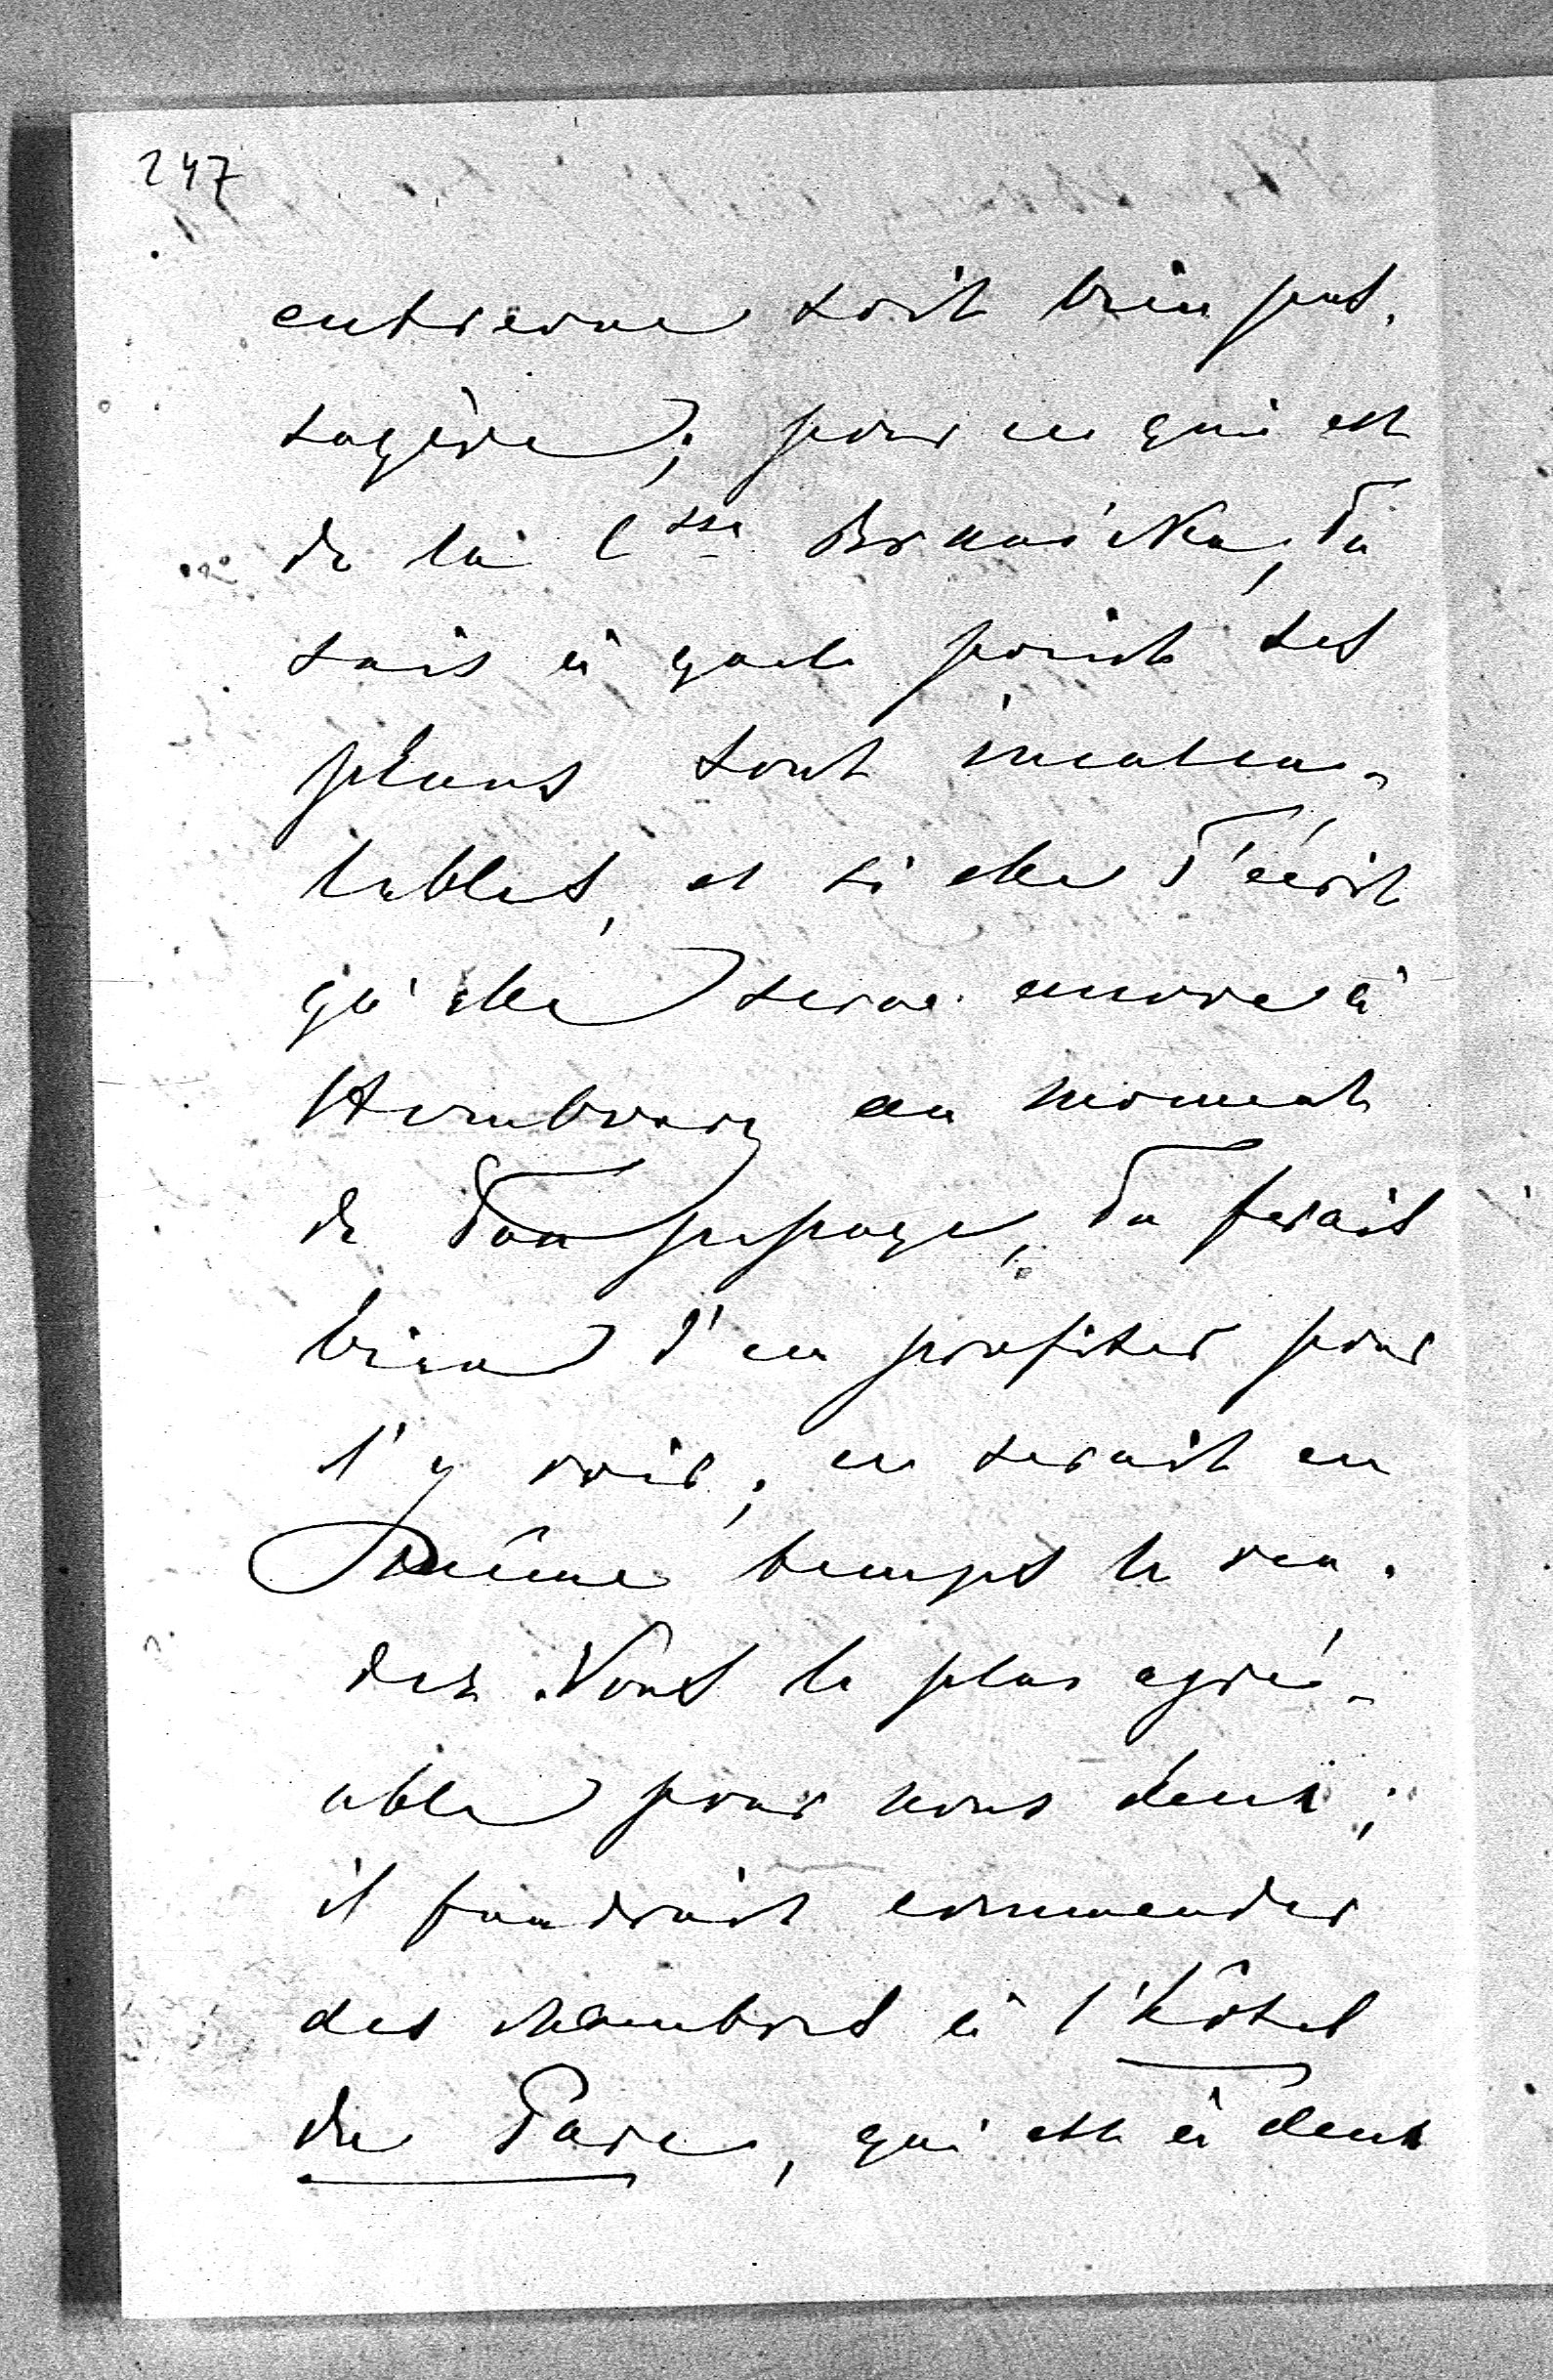 247
entrevue soit bien pas-
sagère; pour ce qui est
de la Csse Branicka, Tu
sais à quel point ses
plans sont incalcu-
lables, et si elle T'écrit
qu'elle sera encore à
Hombourg au moment
de Ton passage, Tu ferais
bien d'en profiter pour
l'y voir; ce serait en
même temps le ren-
dez Vous le plus agré-
able pour nous deux;
il faudrait commander
des chambres à l'hôtel
du Parc, qui est à deux